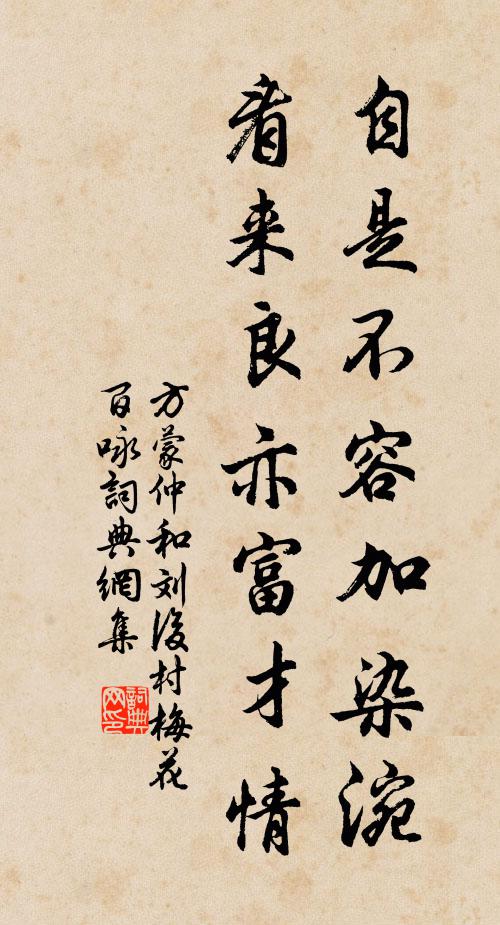 自是不容加染涴
看来良亦富才情
方蒙仲和刘後村梅花
百咏詞典網集
詞典
网印